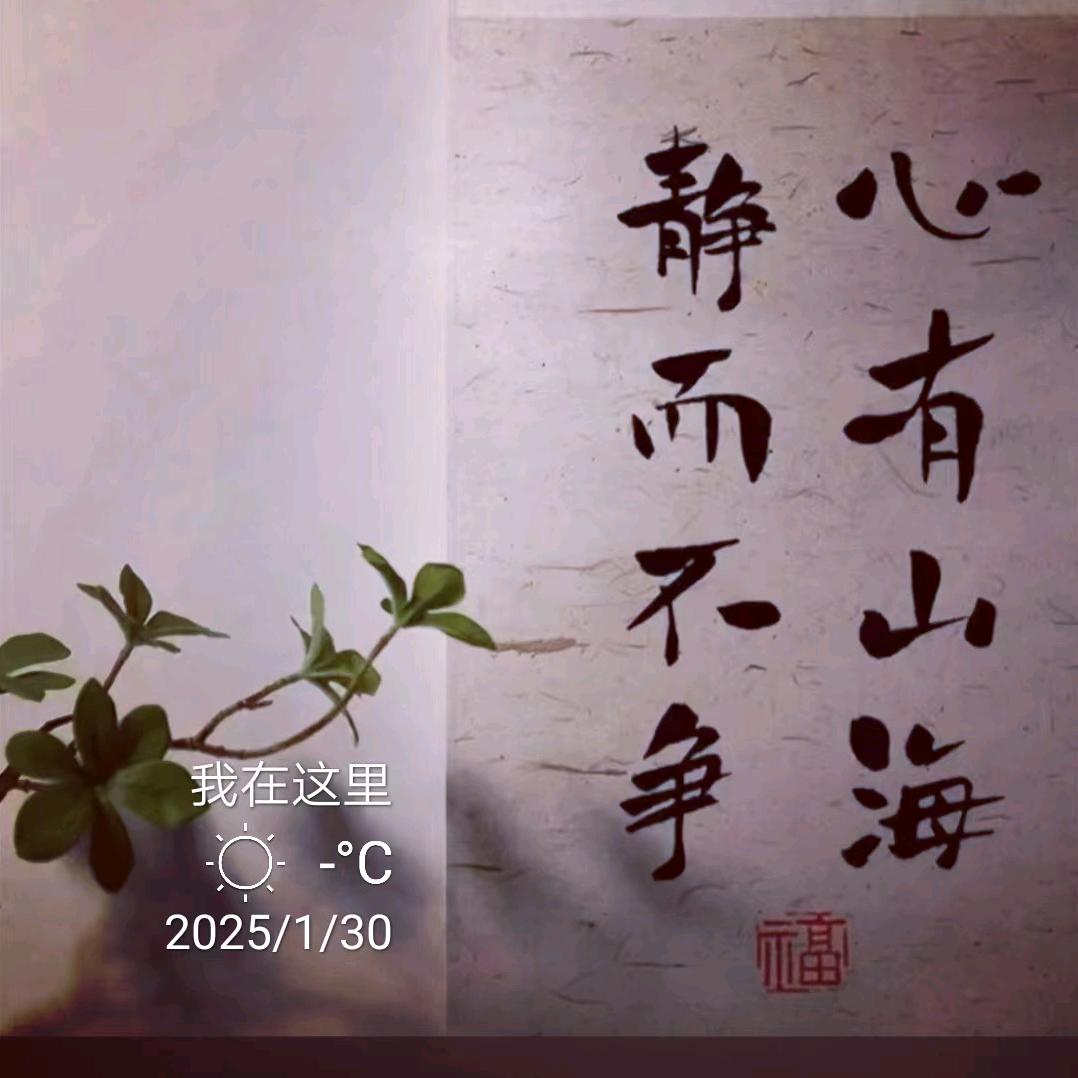 心有山海
静而不争
福
我在这里
-°C
2025/1/30